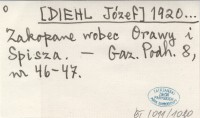 [DIEHL Józef] 1920...
Zakopane wobec Orawy i
Spisza. — Gaz. Podh. 8,
nr 46-47.